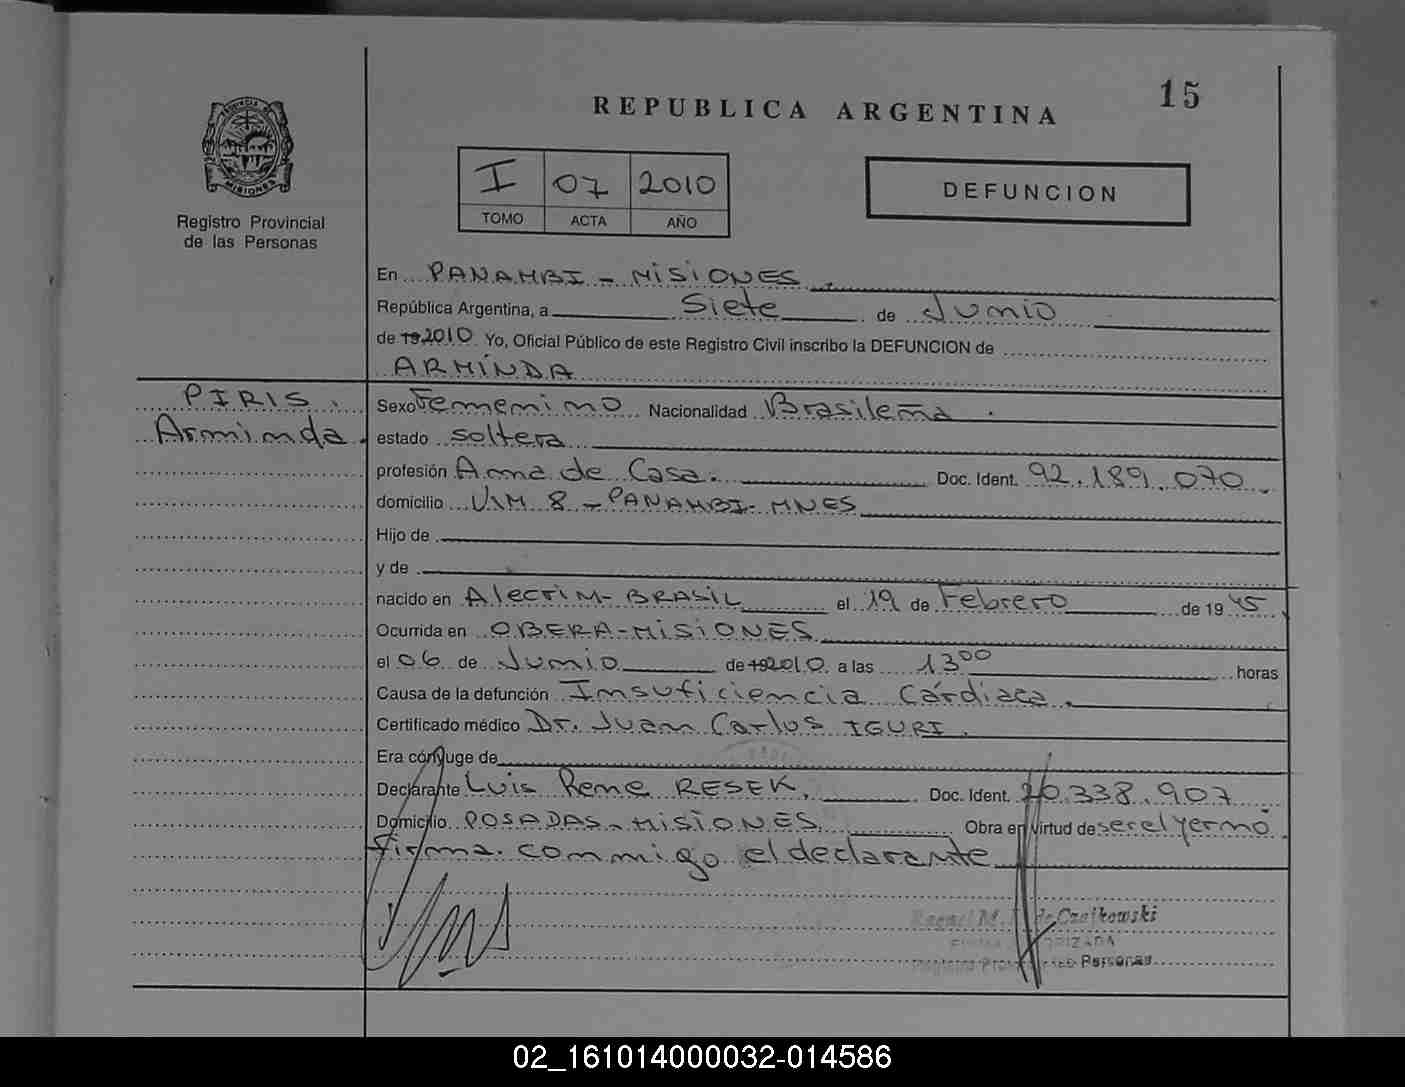 15
REPUBLICA ARGENTINA
PROVINCIA DE
MISIONES
Registro Provincial
de las Personas
I 07 2010
TOMO ACTA AÑO
DEFUNCION
En PANAMBI - MISIONES.
República Argentina, a Siete de Junio
de 19 2010 Yo, Oficial Público de este Registro Civil inscribo la DEFUNCION de
ARMINDA
PIRIS.
Arminda.
Sexo Femenino Nacionalidad Brasileña.
estado soltera
profesión Ama de Casa. Doc. Ident. 92.189.070.
domicilio KM 8 - PANAMBI- MNES
Hijo de
y de
nacido en Alecrim- BRASIL el 19 de Febrero de 19 45
Ocurrida en OBERA-MISIONES
el 06 de Junio de 19 2010 a las 13 00 horas
Causa de la defunción Insuficiencia Cardiaca.
Certificado médico Dr. Juan Carlos IGURI.
Era cónyuge de
Declarante Luis Rene RESEK. Doc. Ident. 20.338.907
Domicilio POSADAS - MISIONES Obra en virtud de ser el yerno
firma conmigo el declarante
de Czajkowski
Personas
02_161014000032-014586